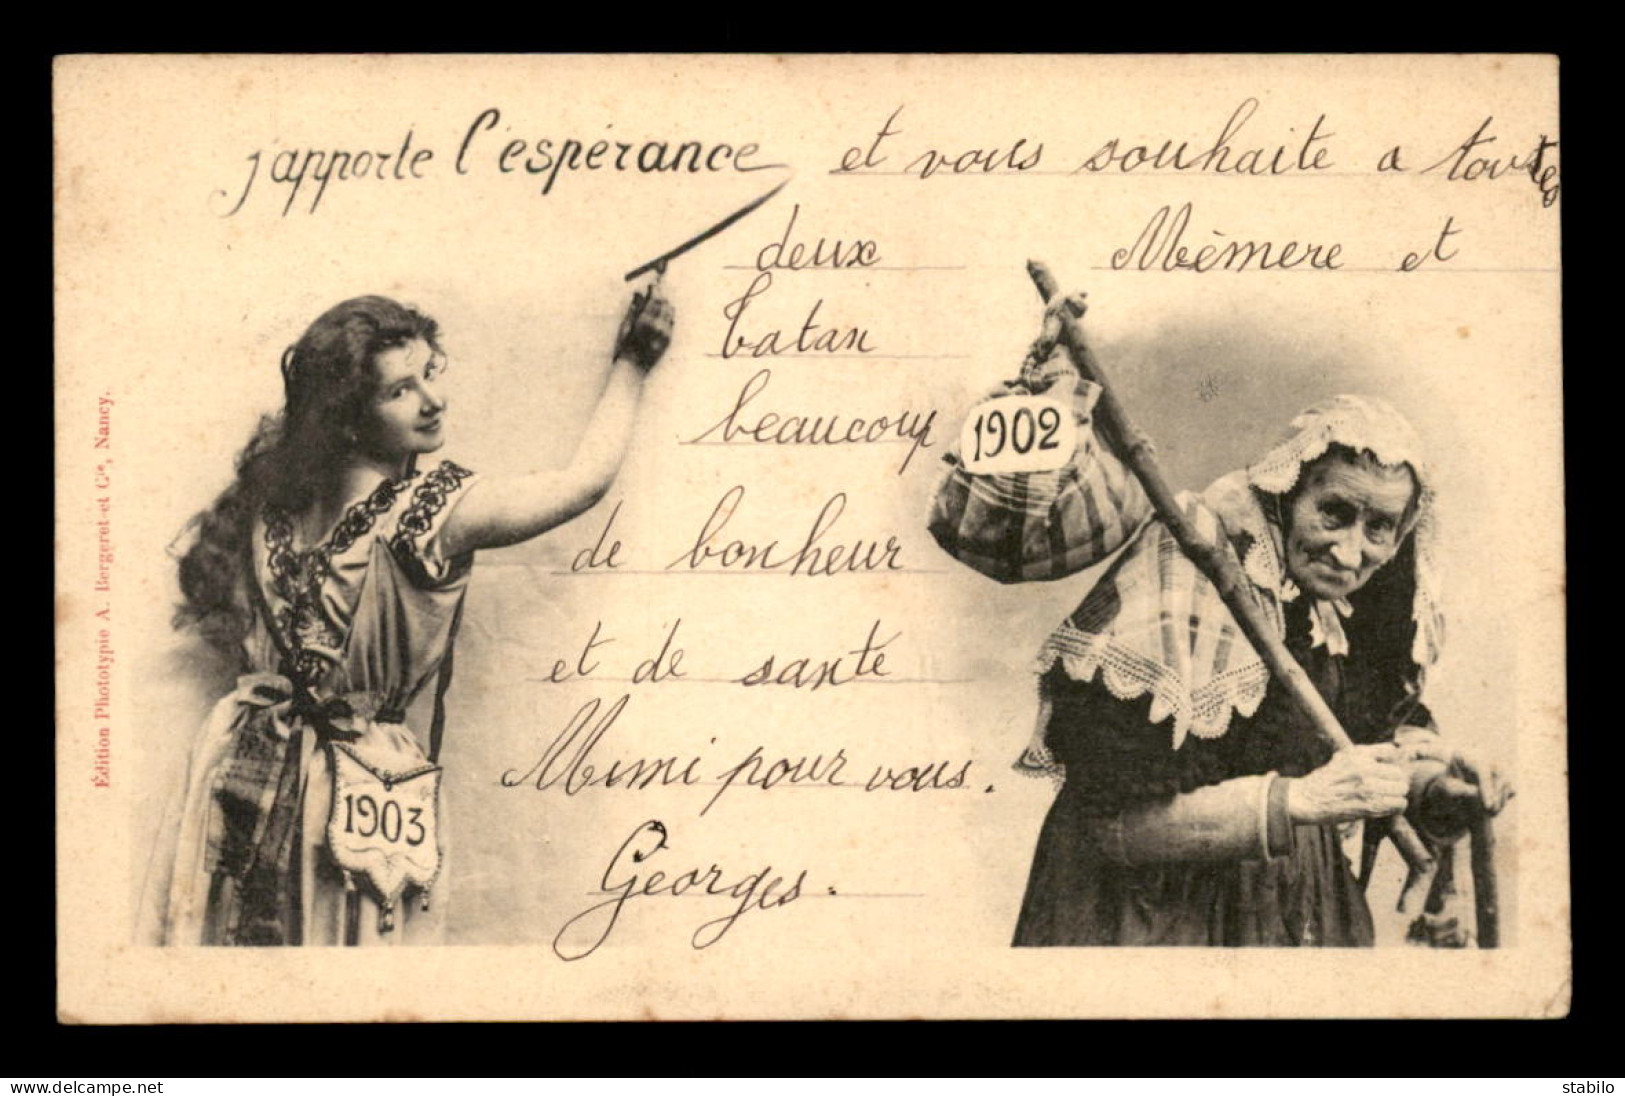 j'apporte l'espérance et vous souhaite a toutes
deux Mèmere et
tatan
beaucoup
1902
de bonheur
et de sante
Mimi pour vous.
1903
Georges.
Édition Phototypie A. Bergeret et Cie, Nancy.
www.delcampe.net
stabilo